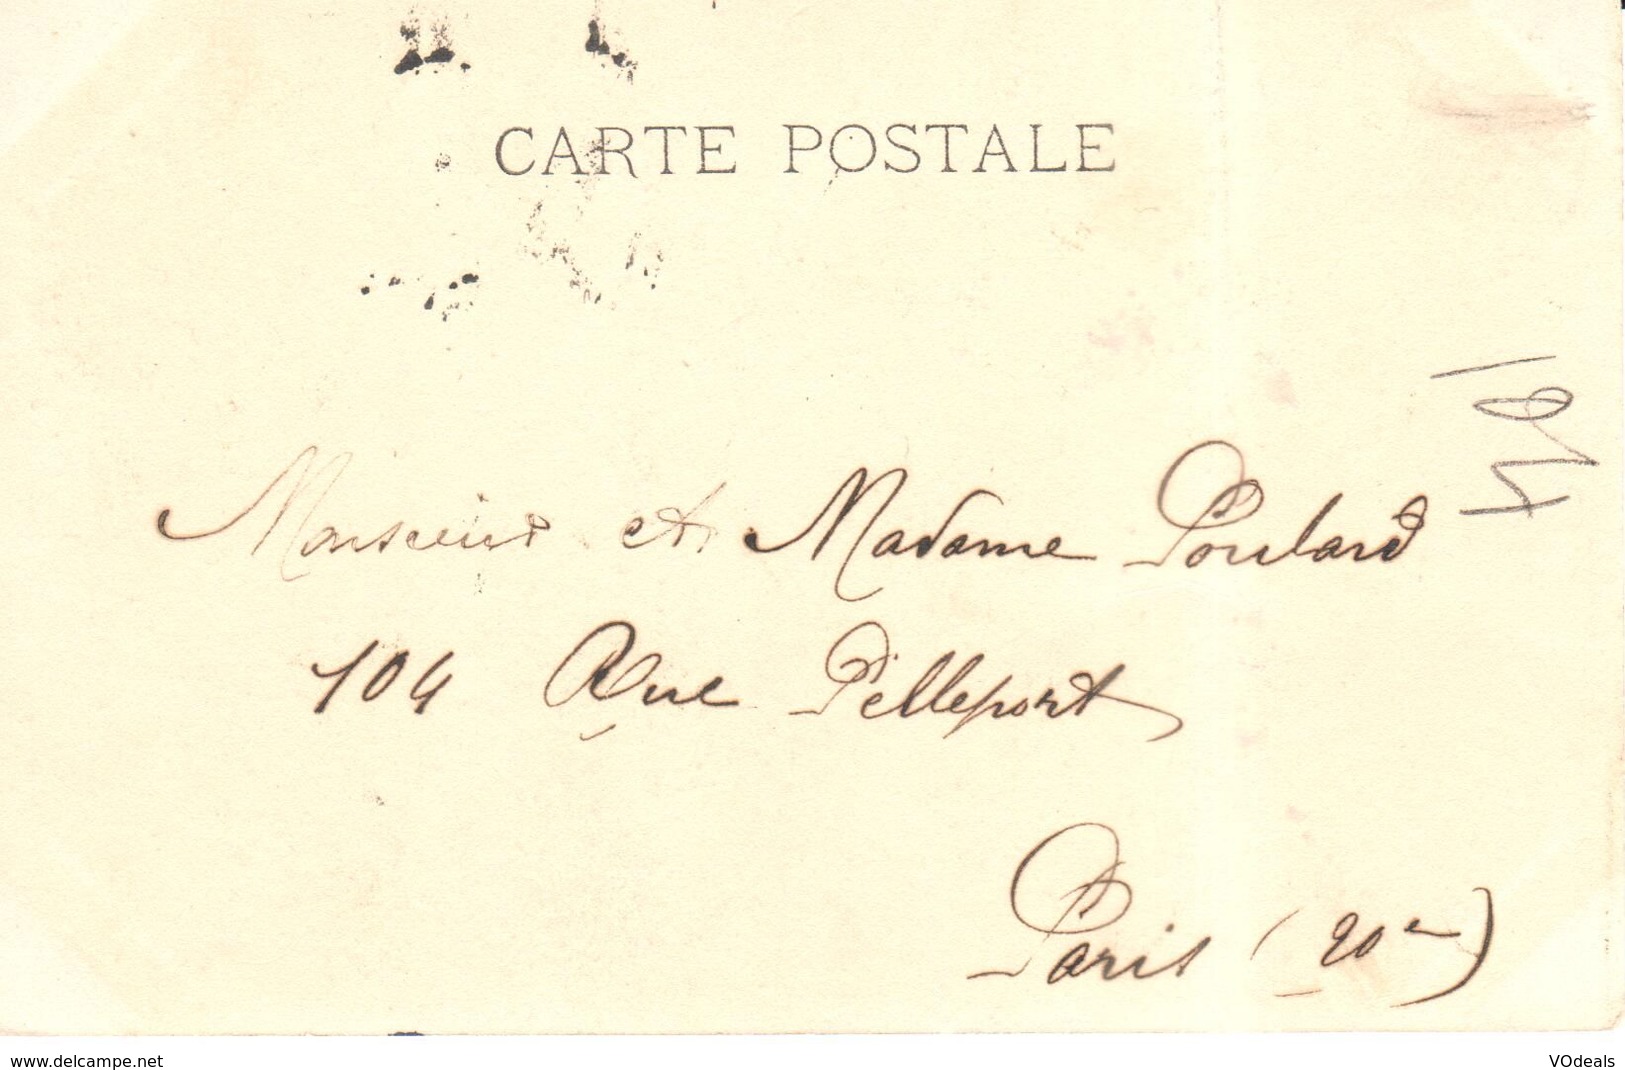 CARTE POSTALE
Monsieur et Madame Poulard
104 Rue Pelleport
Paris (20e)
www.delcampe.net
VOdeals